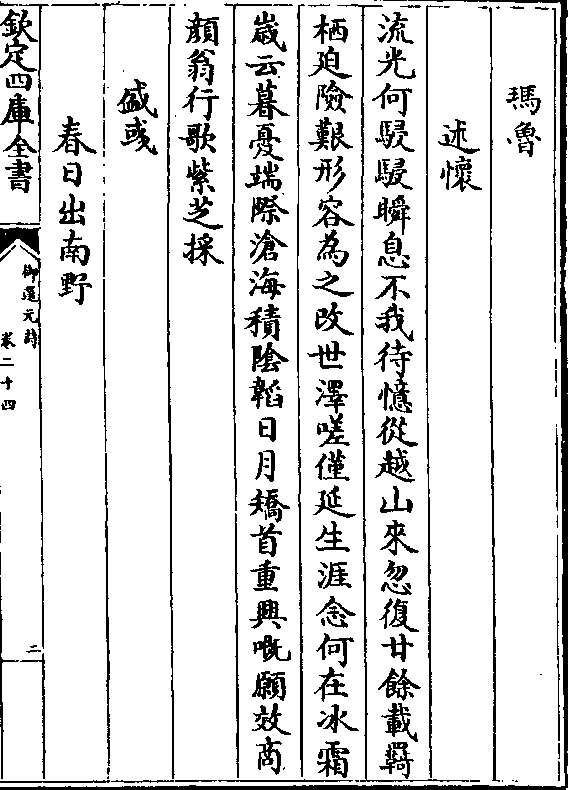 瑪魯
述懷
流光何駸駸瞬息不我待憶從越山來忽復廿餘載羇
栖廹險艱形容為之改世澤嗟僅延生涯念何在冰霜
歳云暮憂端際滄海積陰韜日月矯首重興嘅願效商
顔翁行歌紫芝採
盛彧
春日出南野
欽定四庫全書
御選元詩
卷二十四
二